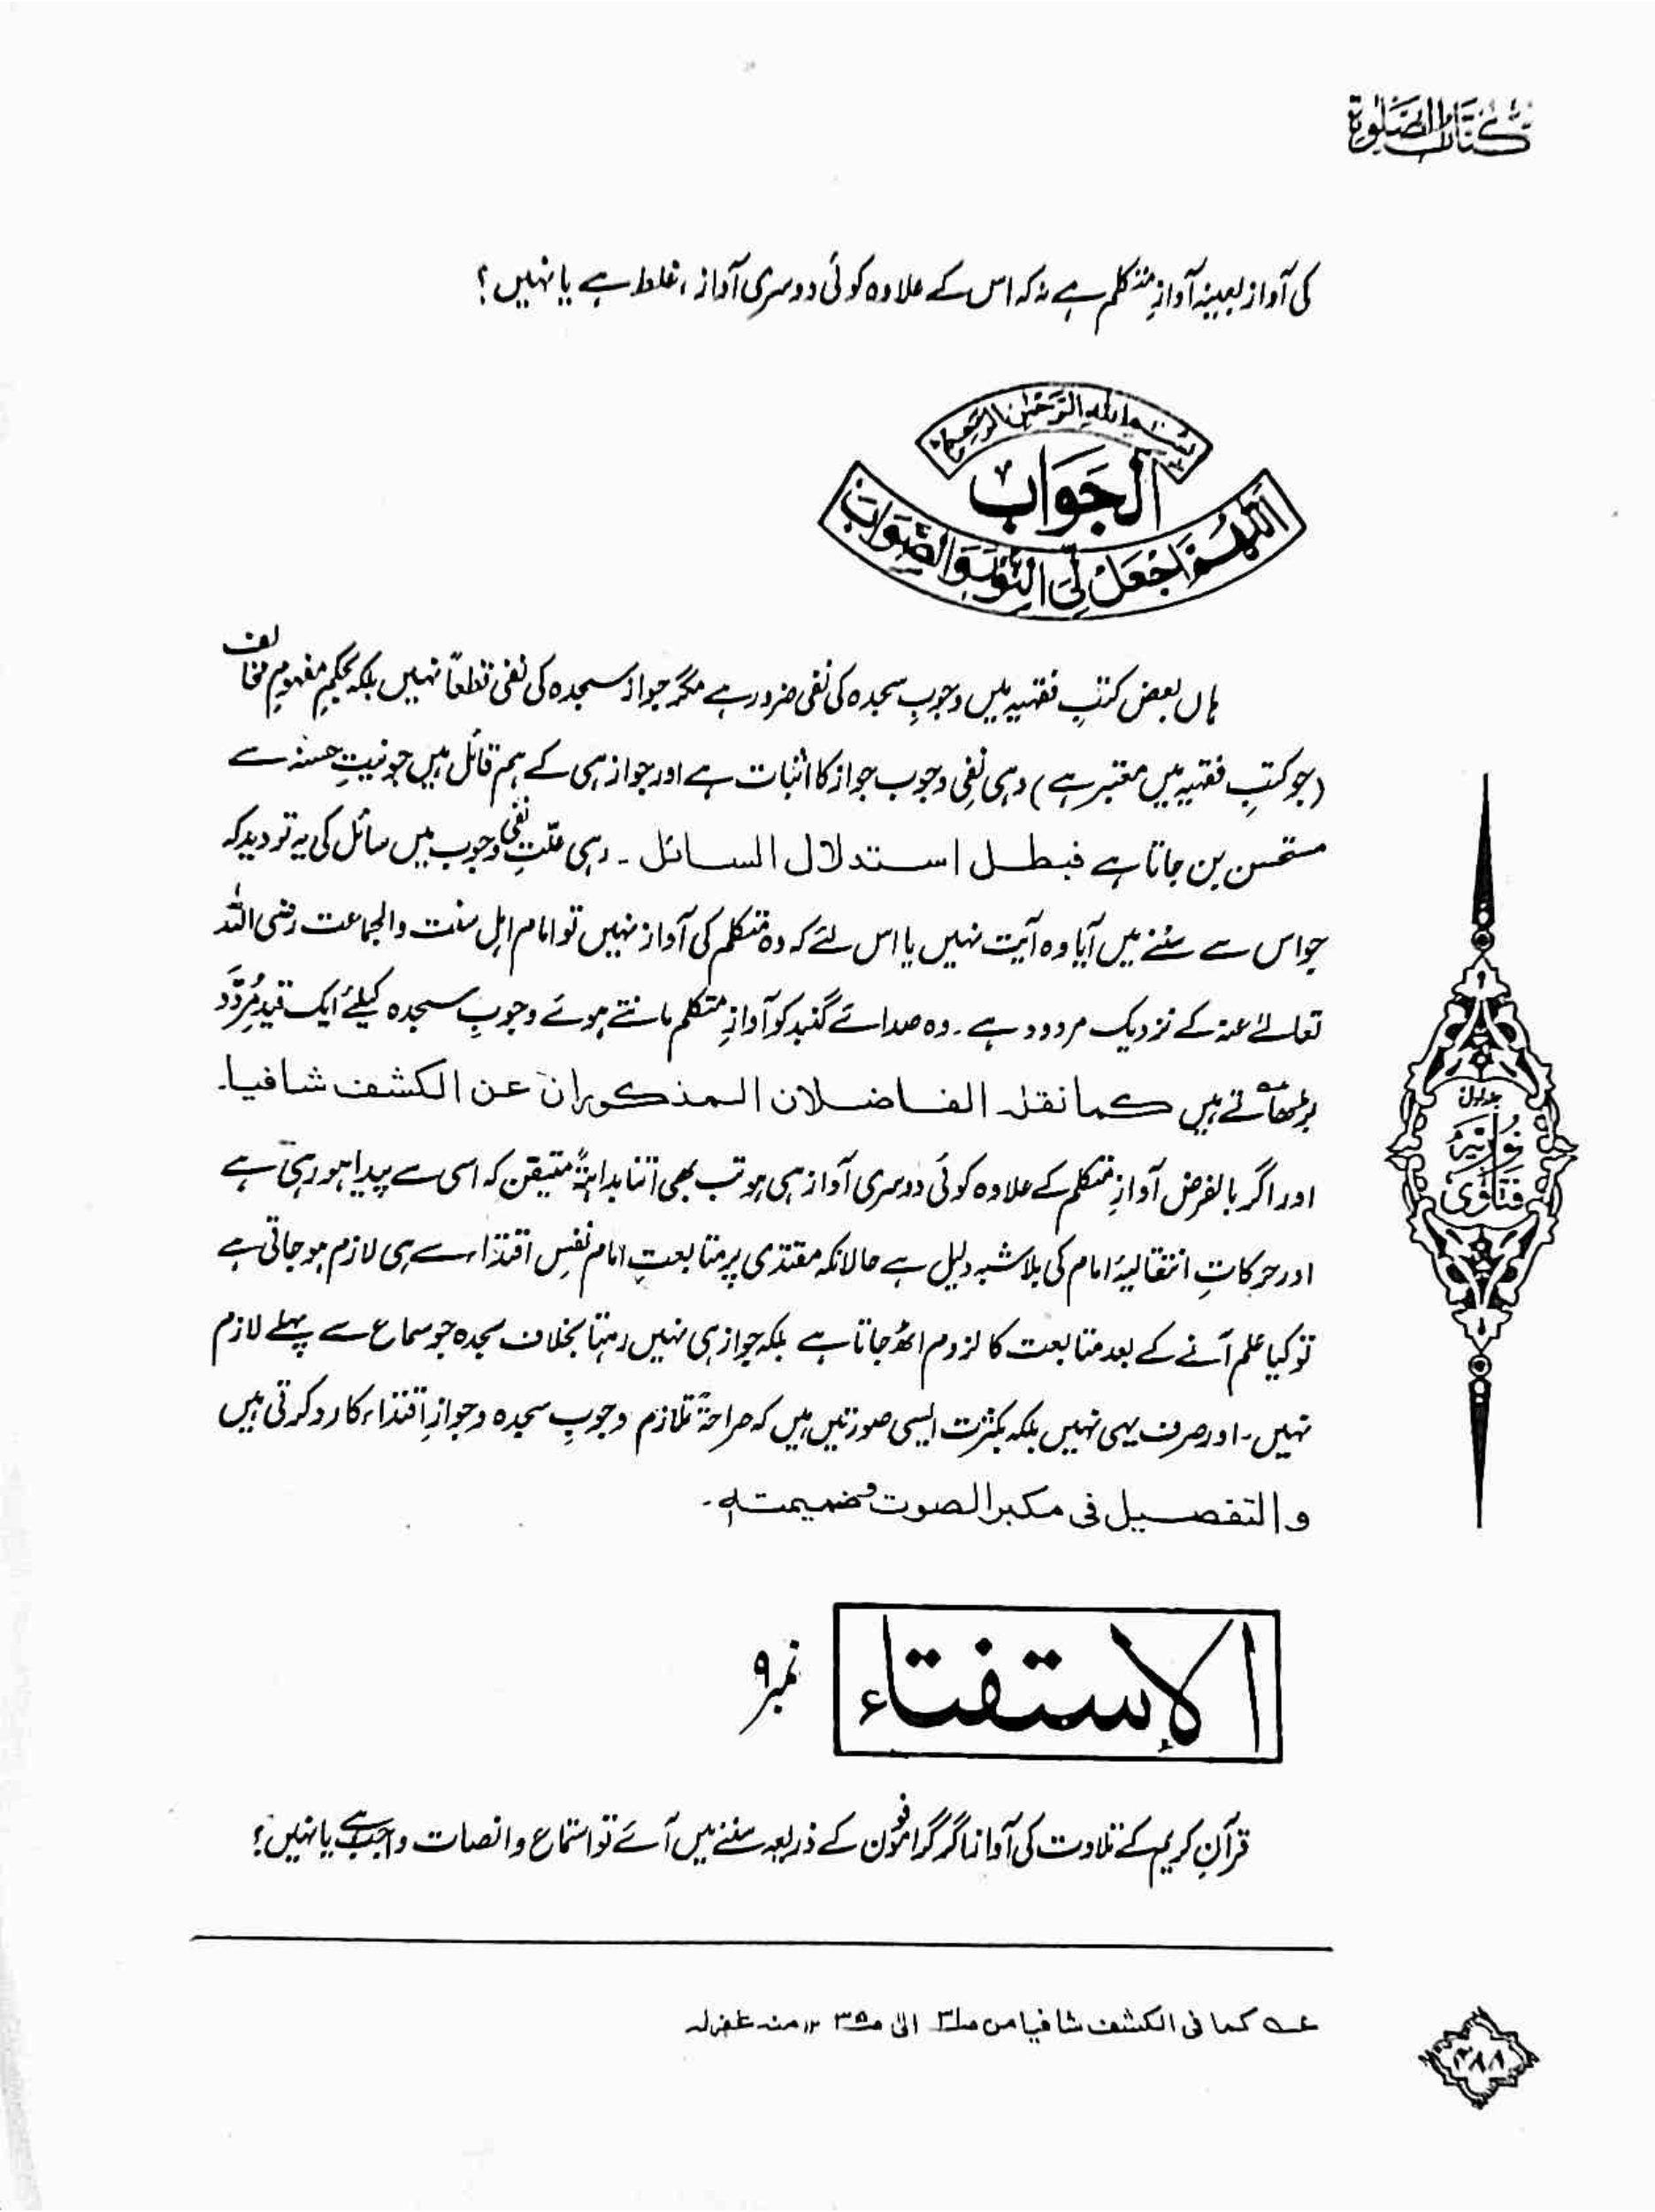 كتاب الصلوٰة
کی آواز بعینہٖ آوازِ متکلم ہے نہ کہ اس کے علاوہ کوئی دوسری آواز، غلط ہے یا نہیں؟
بِسْمِ اللهِ الرَّحْمٰنِ الرَّحِيْمِ
الجَوَاب
اَللّٰهُمَّ اجْعَلْ لِّیَ النُّوْرَ وَالصَّوَابَ
ہاں بعض کتبِ فقہیہ میں وجوبِ سجدہ کی نفی ضرور ہے مگر جوازِ سجدہ کی نفی قطعاً نہیں بلکہ بحکمِ مفہومِ مخالف
(جو کتبِ فقہیہ میں معتبر ہے) وہی نفیِ وجوب جواز کا اثبات ہے اور جواز ہی کے ہم قائل ہیں جو نیتِ حسنہ سے
مستحسن بن جاتا ہے فبطل استدلال السائل ۔ رہی علّتِ نفیِ وجوب میں سائل کی یہ تردید کہ
جو اس سے سننے میں آیا وہ آیت نہیں یا اس لئے کہ وہ متکلم کی آواز نہیں تو امام اہل سنت والجماعت رضی اللہ
تعالےٰ عنہ کے نزدیک مردود ہے ۔ وہ صدائے گنبد کو آوازِ متکلم مانتے ہوئے وجوبِ سجدہ کیلئے ایک قید مُرَدَّد
بڑھاتے عـہ ہیں كما نقل الفاضلان المذكوران عن الكشف شافيا۔
اور اگر بالفرض آوازِ متکلم کے علاوہ کوئی دوسری آواز ہی ہو تب بھی اتنا بداہۃً متیقن کہ اسی سے پیدا ہو رہی ہے
اور حرکاتِ انتقالیۂ امام کی بلا شبہ دلیل ہے حالانکہ مقتدی پر متابعتِ امام نفسِ اقتداء سے ہی لازم ہو جاتی ہے
تو کیا علم آنے کے بعد متابعت کا لزوم اٹھ جاتا ہے بلکہ جواز ہی نہیں رہتا بخلاف سجدہ جو سماع سے پہلے لازم
نہیں ۔ اور صرف یہی نہیں بلکہ بکثرت ایسی صورتیں ہیں کہ صراحۃً تلازم وجوبِ سجدہ و جوازِ اقتداء کا رد کرتی ہیں
والتفصيل فی مكبر الصوت وضميمته ۔
الاستفتاء
نمبر ۹
قرآنِ کریم کے تلاوت کی آواز اگر گراموفون کے ذریعہ سننے میں آئے تو استماع و انصات واجب ہے یا نہیں؟
جلد اول
نوریہ
فتاوٰی
عـہ كما فی الكشف شافيا من الیٰ ۱۲ منہ غفرلہ
۲۸۸